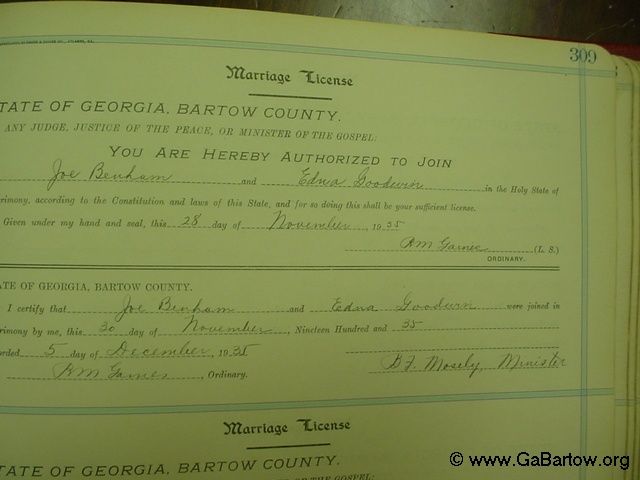 309
Marriage License
TATE OF GEORGIA, BARTOW COUNTY.
ANY JUDGE, JUSTICE OF THE PEACE, OR MINISTER OF THE GOSPEL:
YOU ARE HEREBY AUTHORIZED TO JOIN
Joe Benham and Edna Goodwin in the Holy State of
rimony, according to the Constitution and laws of this State, and for so doing this shall be your sufficient license.
Given under my hand and seal, this 28 day of November, 1935
HM Gaines (L. S.)
ORDINARY.
ATE OF GEORGIA, BARTOW COUNTY.
I certify that Joe Benham and Edna Goodwin were joined in
rimony by me, this 30 day of November, Nineteen Hundred and 35
orded 5 day of December, 1935
HM Gaines, Ordinary.
B.F. Mosely, Minister
Marriage License
TATE OF GEORGIA, BARTOW COUNTY.
© www.GaBartow.org